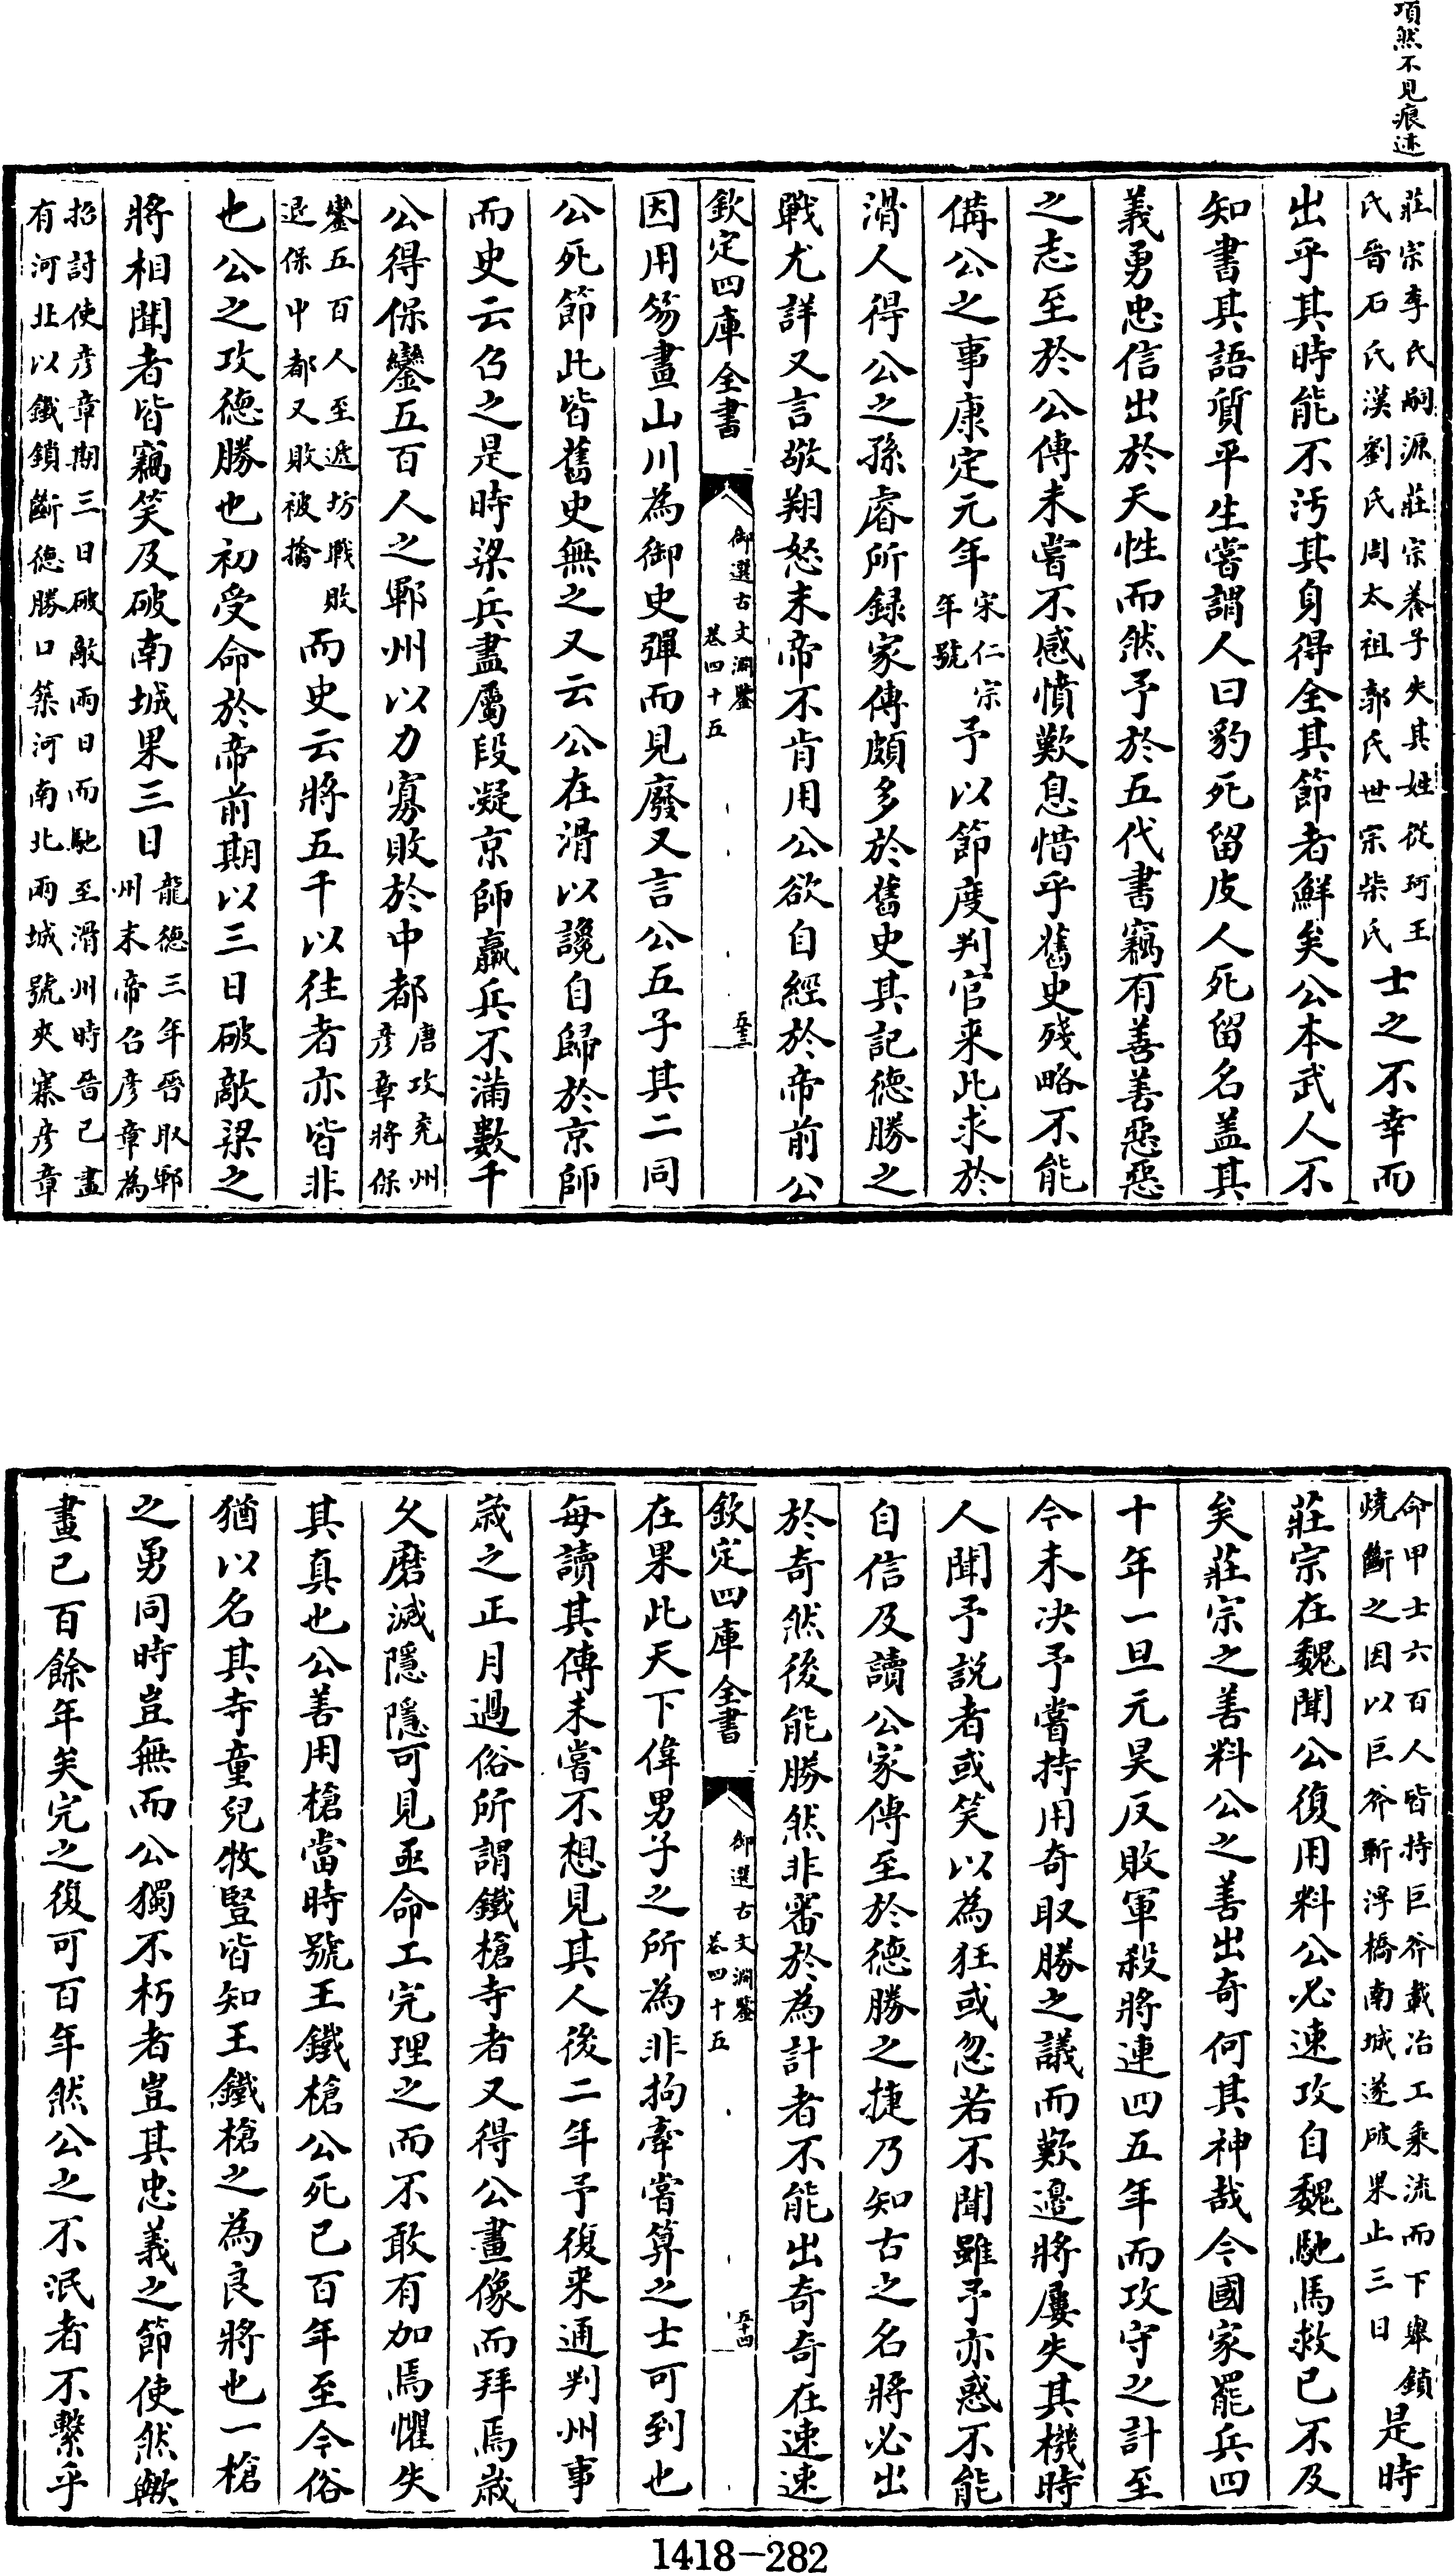 項然不見痕迹
莊宗李氏嗣源莊宗養子失其姓從珂王
氏晉石氏漢劉氏周太祖郭氏世宗柴氏
士之不幸而
出乎其時能不汚其身得全其節者鮮矣公本武人不
知書其語質平生嘗謂人曰豹死留皮人死留名盖其
義勇忠信出於天性而然予於五代書竊有善善惡惡
之志至於公傳未嘗不感憤歎息惜乎舊史殘略不能
備公之事康定元年
宋仁宗
年號
予以節度判官来此求於
滑人得公之孫睿所録家傳頗多於舊史其記德勝之
戰尤詳又言敬翔怒末帝不肯用公欲自經於帝前公
欽定四庫全書
御選古文淵鑒
卷四十五
五十三
因用笏畫山川為御史彈而見廢又言公五子其二同
公死節此皆舊史無之又云公在滑以讒自歸於京師
而史云召之是時梁兵盡屬段凝京師羸兵不滿數千
公得保鑾五百人之鄆州以力寡敗於中都
唐攻兗州
彦章將保
鑾五百人至遞坊戰敗
退保中都又敗被擒
而史云將五千以往者亦皆非
也公之攻德勝也初受命於帝前期以三日破敵梁之
將相聞者皆竊笑及破南城果三日
龍德三年晉取鄆
州末帝召彦章為
招討使彦章期三日破敵兩日而馳至滑州時晉已盡
有河北以鐵鎖斷德勝口築河南北兩城號夾寨彦章
命甲士六百人皆持巨斧載冶工乘流而下舉鎖
燒斷之因以巨斧斬浮橋南城遂破果止三日
是時
莊宗在魏聞公復用料公必速攻自魏馳馬救已不及
矣莊宗之善料公之善出奇何其神哉今國家罷兵四
十年一旦元昊反敗軍殺將連四五年而攻守之計至
今未决予嘗持用奇取勝之議而歎邊將屢失其機時
人聞予説者或笑以為狂或忽若不聞雖予亦惑不能
自信及讀公家傳至於德勝之捷乃知古之名將必出
於奇然後能勝然非審於為計者不能出奇奇在速速
欽定四庫全書
御選古文淵鑒
卷四十五
五十四
在果此天下偉男子之所為非拘牽嘗算之士可到也
每讀其傳未嘗不想見其人後二年予復来通判州事
歲之正月過俗所謂鐵槍寺者又得公畫像而拜焉歲
久磨滅隱隱可見亟命工完理之而不敢有加焉懼失
其真也公善用槍當時號王鐵槍公死已百年至今俗
猶以名其寺童兒牧豎皆知王鐵槍之為良將也一槍
之勇同時豈無而公獨不朽者豈其忠義之節使然歟
畫已百餘年矣完之復可百年然公之不泯者不繫乎
1418-282